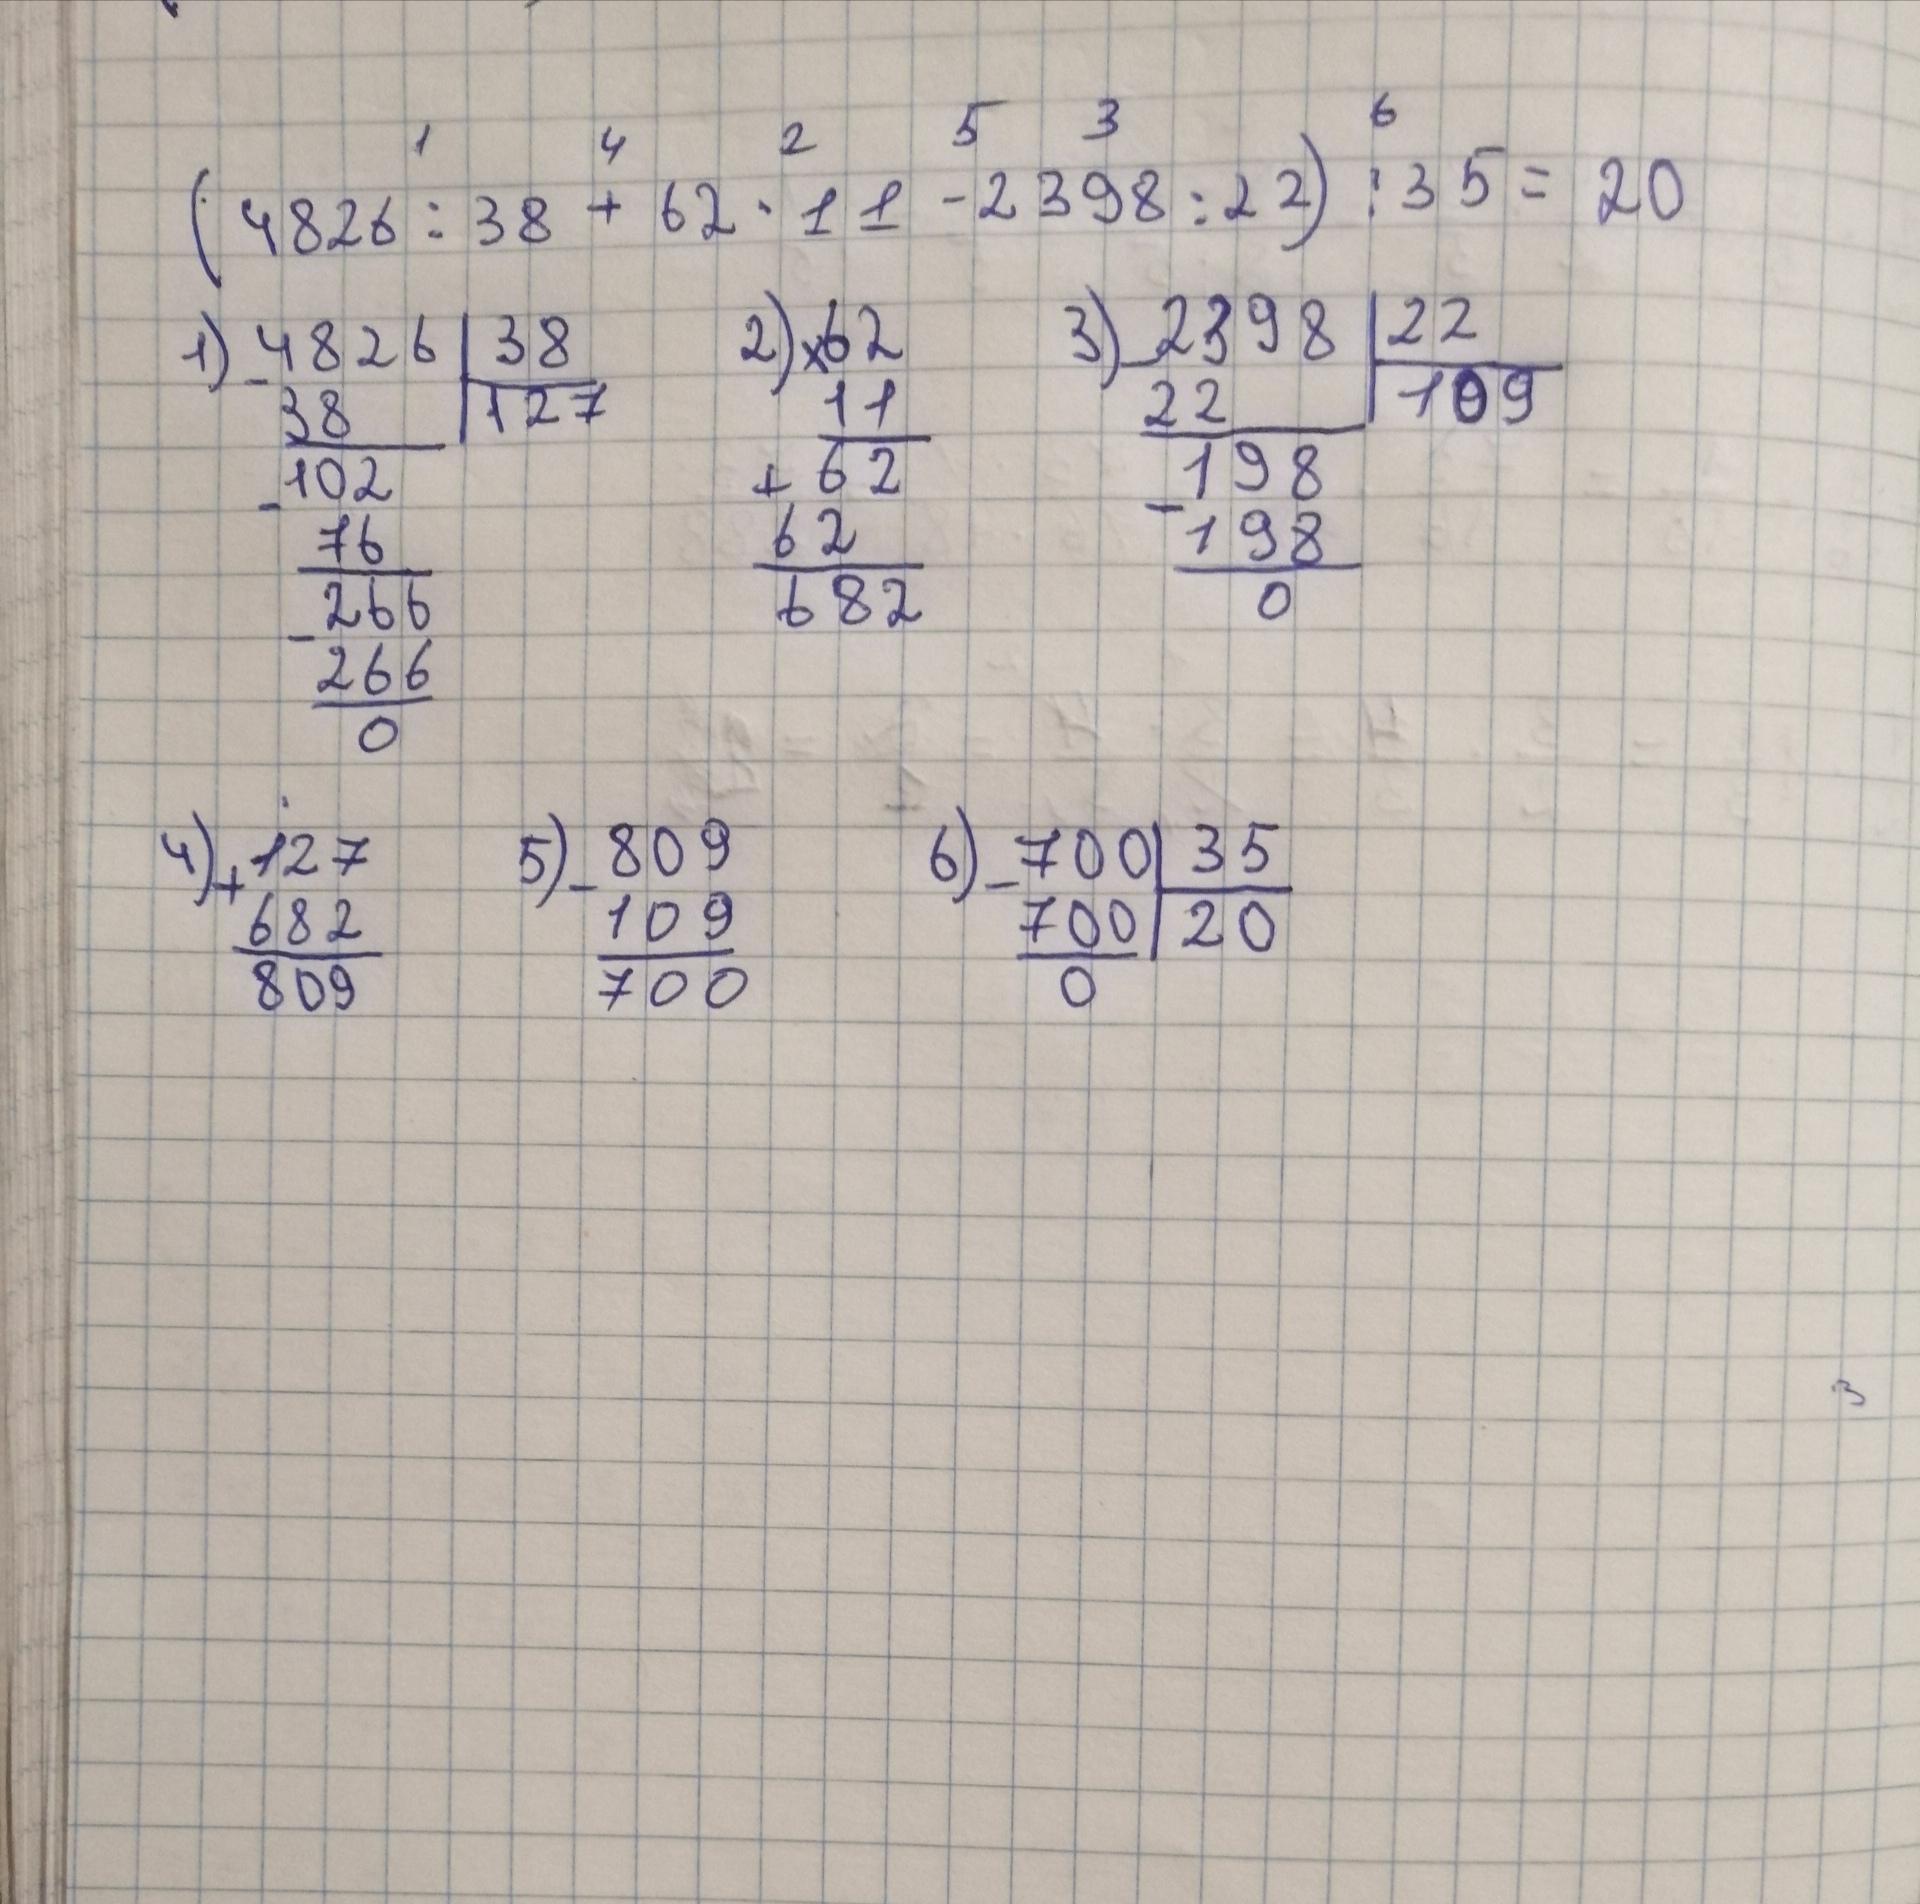 1 4 2 5 3 6
(4826 : 38 + 62 · 11 - 2398 : 22) : 35 = 20
1) - 4826 | 38
38 | 127
- 102
76
- 266
266
0
2) × 62
11
+ 62
62
682
3) - 2398 | 22
22 | 109
- 198
198
0
4) + 127
682
809
5) - 809
109
700
6) - 700 | 35
700 | 20
0
3